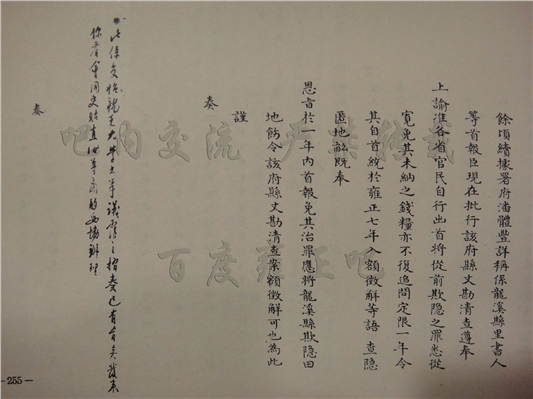 餘頃續據署府潘體豐詳稱係龍溪縣里書人
等首報臣現在批行該府縣丈勘清查遵奉
上諭准各省官民自行出首將從前欺隱之罪悉從
寬免其未納之錢糧亦不復追問定限一年令
其自首統於雍正七年入額徵解等語查隱
匿地畝既奉
恩旨於一年內首報免其治罪應將龍溪縣欺隱田
地飭令該府縣丈勘清查案額徵解可也為此
謹
奏
此係交怡親王大學士等議覆之摺奏已有旨矣發來
你看會同史貽直
辦理
奏
吧内交流
百度雍正吧
-255-